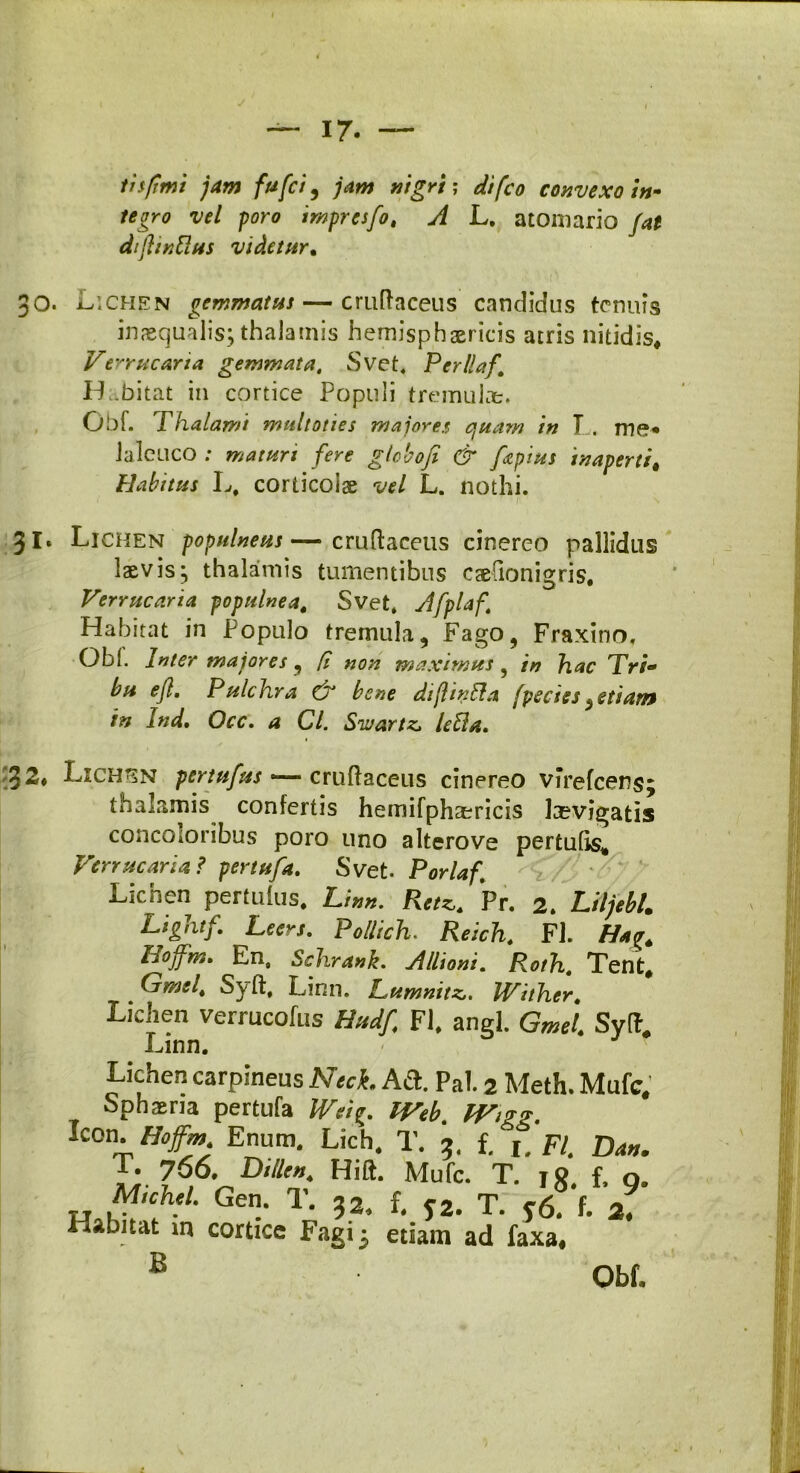 — 17. —
tisſimi jam fuſci, jam nigri; diſco convexo in-
tegro vel poro impresſo. A L. atomario ſat
diſtinctus videtur.
30. LICHEN gemmatus — cruſtaceus candidus tenuis
inæqualis; thalamis hemisphæricis atris nitidis.
Verrucaria gemmata. Svet. Perllaf.
Habitat in cortice Populi tremulæ.
Obſ. Thalami multoties majores quam in L. me-
laleuco: maturi fere globoſi & ſæpius inaperti.
Habitus L. corticolæ vel L. nothi.
31. LICHEN populneus — cruſtaceus cinereo pallidus
lævis; thalamis tumentibus cæſionigris.
Verrucaria populnea. Svet. Aſplaf.
Habitat in Populo tremula, Fago, Fraxino.
Obſ. Inter majores, ſi non maximus, in hac Tri-
bu eſt. Pulchra & bene diſtincta ſpecies, etiam
in Ind. Occ. a Cl. Swartz lecta.
32. LICHEN pertuſus — cruſtaceus cinereo vireſcens;
thalamis confertis hemiſphæricis lævigatis
concoloribus poro uno alterove pertuſis.
Verrucaria? pertuſa. Svet. Porlaf.
Lichen pertuſus. Linn. Retz. Pr. 2. Liljebl.
Lightf. Leers. Pollich. Reich. Fl. Hag.
Hoffm. En. Schrank. Allioni. Roth. Tent.
Gmel. Syſt. Linn. Lumnitz. Wither.
Lichen verrucoſus Hudſ. Fl. angl. Gmel. Syſt.
Linn.
Lichen carpineus Neck. Act. Pal. 2 Meth. Muſc.
Sphæria pertuſa Weig. Web. Wigg.
Icon. Hoffm. Enum. Lich. T. 3. f. 1. Fl. Dan.
T. 766. Dillen. Hiſt. Muſc. T. 18. f. 9.
Michel. Gen. T. 32. f. 52. T. 56. f. 2.
Habitat in cortice Fagi; etiam ad ſaxa.
B
Obſ.